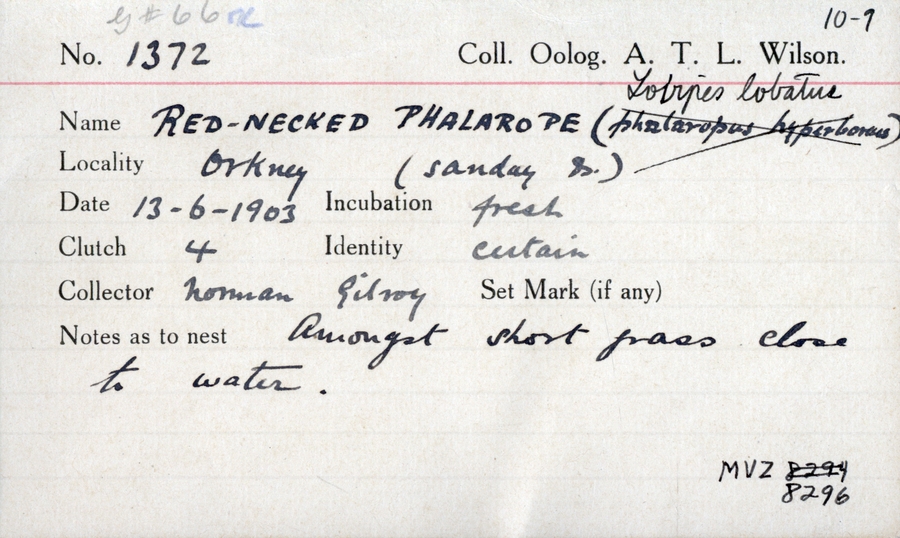 G#66
10-9
No. 1372 Coll. Oolog. A. T. L. Wilson.
Lobipes lobatus
Name RED-NECKED PHALAROPE (phalaropus hyperboreus)
Locality Orkney (Sanday Is.)
Date 13-6-1903 Incubation fresh
Clutch 4 Identity certain
Collector Norman Gilroy Set Mark (if any)
Notes as to nest Amongst short grass close
to water.
MVZ 8294
8296